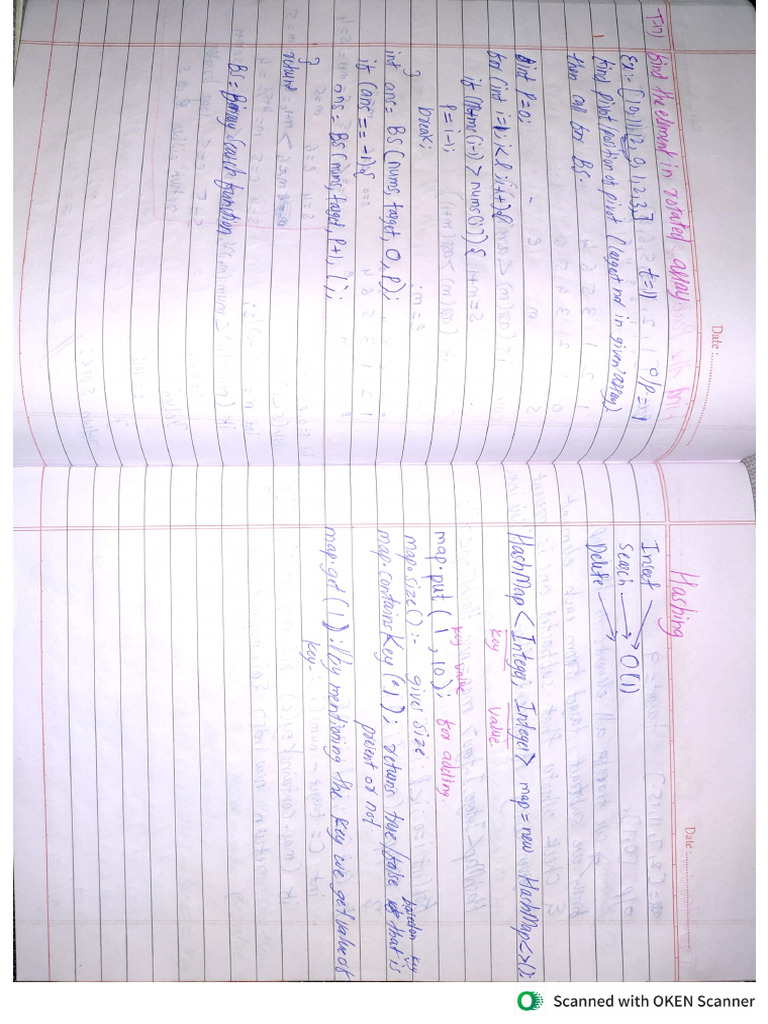 Date:
T-17) find the element in rotated array.
Ex:- [10,11,12,9,1,2,3] t=11 o/p=1
find pivot position of pivot (largest no. in given array)
then call for BS.
int P=0;
for (int i=1; i<l; i++){
if (nums(i-1) > nums(i)) {
P = i-1;
break;
}
int ans = BS (nums, target, 0, P);
if (ans == -1){
ans = BS (nums, target, P+1, l);
}
return
BS = Binary Search function
Date:
Hashing
Insert
Search → O(1)
Delete
HashMap < Integer, Integer> map = new HashMap<>();
key value
map.put (1, 10); for adding
key value
map.size() :- gives size
map.contains Key (1); returns true/false based on key that is
present or not
map.get(1) : //by mentioning the key we get value of
key
Scanned with OKEN Scanner